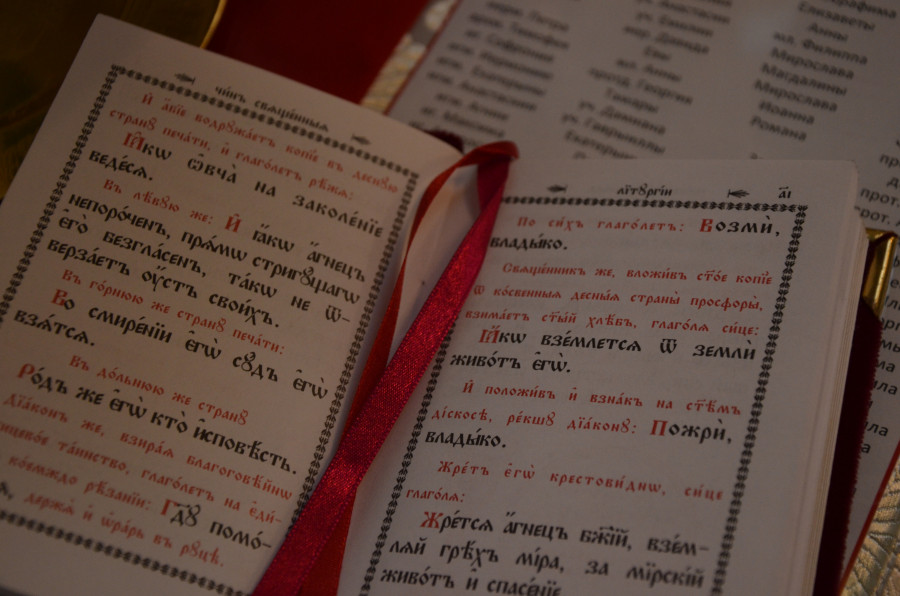 чи́нъ свѧще́нныѧ
И҆ а҆́бїе водрꙋжа́етъ копїѐ въ деснꙋ́ю
странꙋ̀ печа́ти, и҆ глаго́летъ рѣ́жѧ:
Ꙗ҆́кѡ ѻ҆вча̀ на заколе́нїе
веде́сѧ.
Въ лѣ́вꙋю же: И҆ ꙗ҆́кѡ а҆́гнецъ
непоро́ченъ, прѧ́мѡ стригꙋ́щагѡ
є҆го̀ безгла́сенъ, та́кѡ не ѿ-
верза́етъ ᲂу҆́стъ свои́хъ.
Въ го́рнюю же странꙋ̀ печа́ти:
Во смире́нїи є҆гѡ̀ сꙋ́дъ є҆гѡ̀
взѧ́тсѧ.
Въ до́льнюю же странꙋ̀
Ро́дъ же є҆гѡ̀ кто̀ и҆сповѣ́сть.
Дїа́конъ же, взира́ѧ благоговѣ́йнѡ
си́цевое та́инство, глаго́летъ на є҆ди́-
ко́емждо рѣ́занїи: Гдⷭ҇ꙋ помо́-
держа̀ и҆ ѡ҆ра́рь въ рꙋцѣ̀.
лїтꙋргі́и
а҃і
По си́хъ глаго́летъ: Возмѝ,
влады́ко.
Свѧще́нникъ же, вложи́въ ст҃о́е копїѐ
ѿ ко́свенныѧ десны́ѧ страны̀ просфоры̀,
взима́етъ ст҃ы́й хлѣ́бъ, глаго́лѧ си́це:
Ꙗ҆́кѡ взе́млетсѧ ѿ землѝ
живо́тъ є҆гѡ̀.
И҆ положи́въ и҆̀ взна́къ на ст҃ѣ́мъ
ді́скосѣ, ре́кшꙋ дїа́конꙋ: Пожрѝ,
влады́ко.
Жре́тъ є҆го̀ крестови́днѡ, си́це
глаго́лѧ:
Жре́тсѧ а҆́гнецъ бж҃їй, взе́м-
лѧй грѣ́хъ мі́ра, за мїрскі́й
живо́тъ и҆ спасе́нїе
Петра
Тимофея
Софрония
Екатерины
Анастасии
Максима
Анастасии
Емилии
Давида
Евы
Анны
прозд. Георгия
Тамары
Дамиана
уч. Гавриила
Серафима
Елизаветы
Анны
мл. Филиппа
Мирослава
Магдалины
Мирослава
Иоанна
Романа